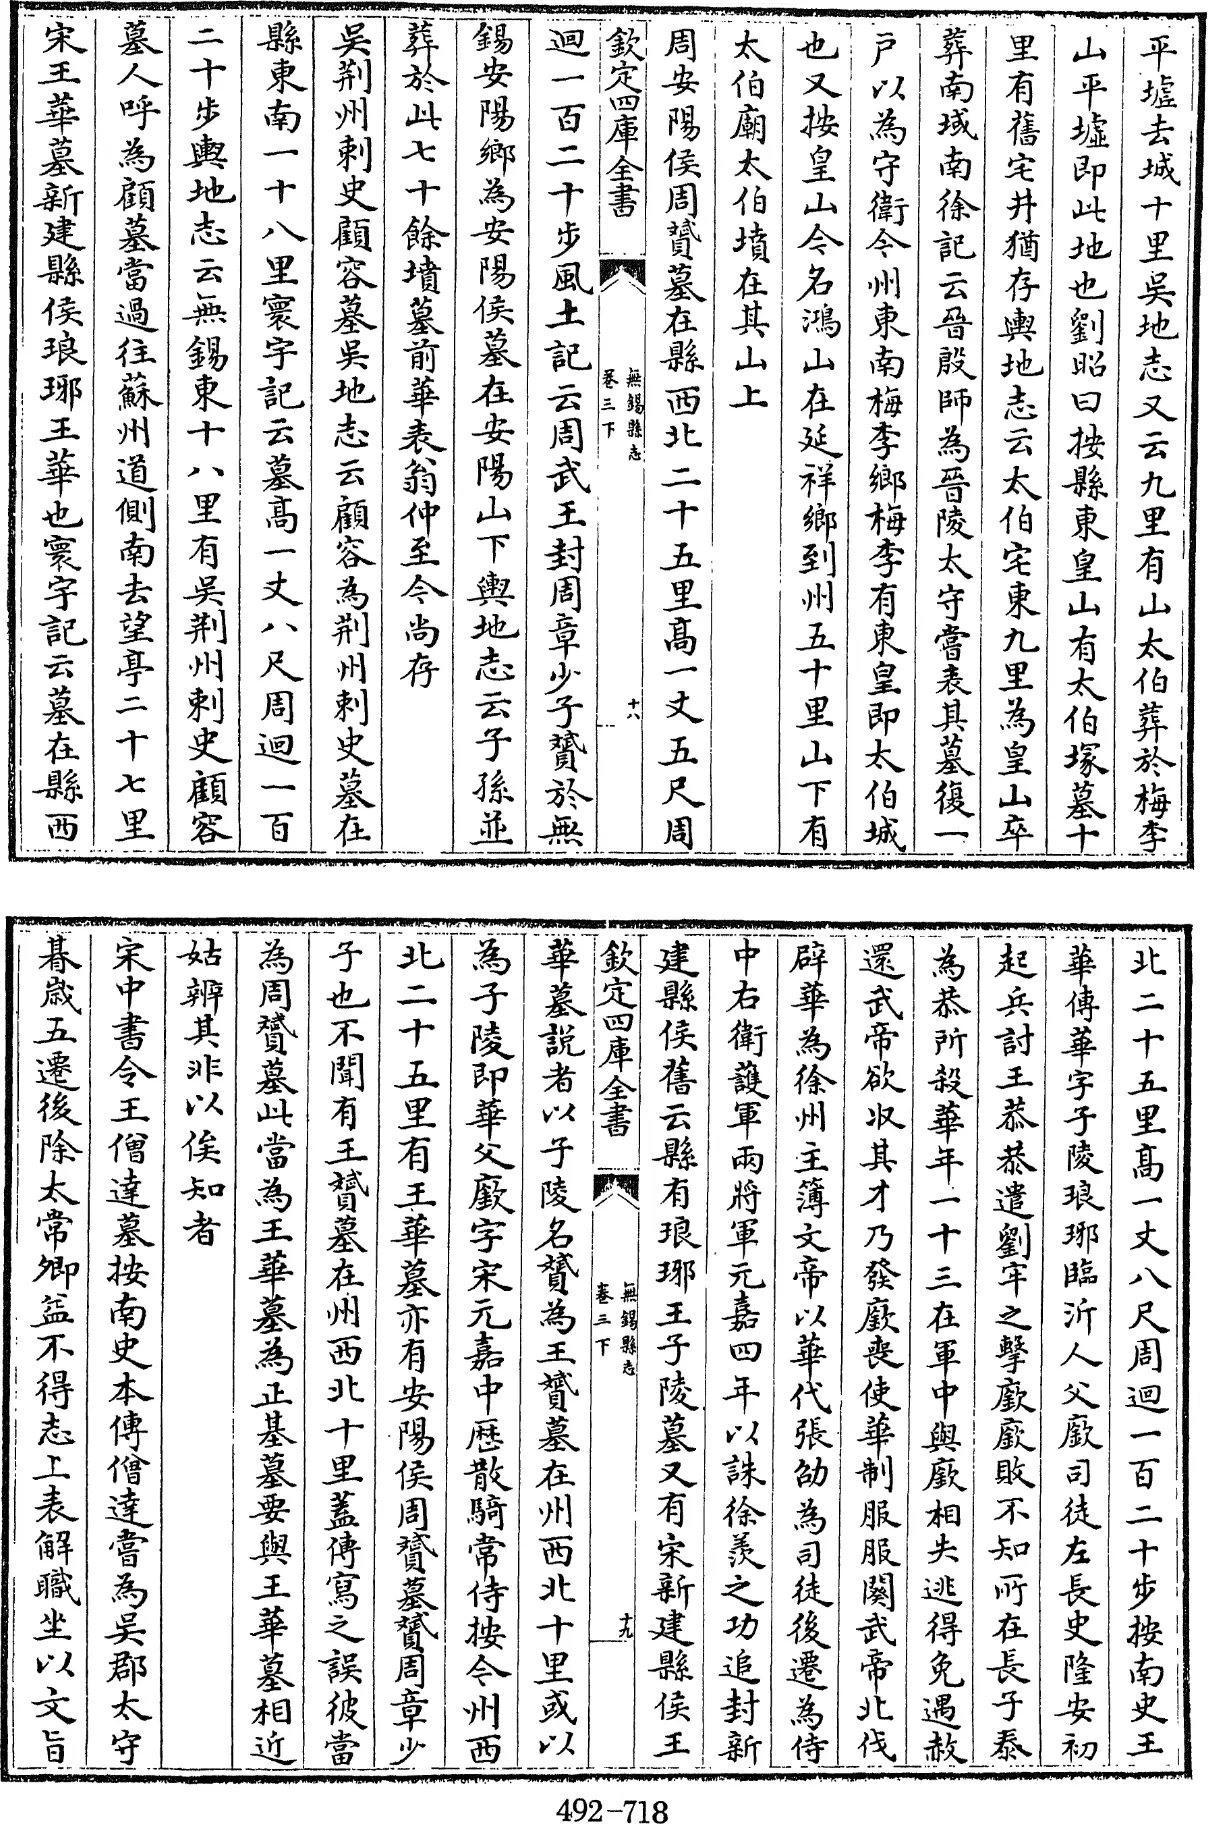 平墟去城十里吳地志又云九里有山太伯葬於梅李
山平墟即此地也劉昭曰按縣東皇山有太伯塚墓十
里有舊宅井猶存輿地志云太伯宅東九里為皇山卒
葬南域南徐記云晉殷師為晉陵太守嘗表其墓復一
户以為守衛今州東南梅李鄉梅李有東皇即太伯城
也又按皇山今名鴻山在延祥鄉到州五十里山下有
太伯廟太伯墳在其山上
周安陽侯周贇墓在縣西北二十五里髙一丈五尺周
欽定四庫全書
無錫縣志
卷三下
十八
迴一百二十步風土記云周武王封周章少子贇於無
錫安陽鄉為安陽侯墓在安陽山下輿地志云子孫並
葬於此七十餘墳墓前華表翁仲至今尚存
吳荆州刺史顧容墓吳地志云顧容為荆州刺史墓在
縣東南一十八里寰宇記云墓髙一丈八尺周迴一百
二十步輿地志云無錫東十八里有吳荆州刺史顧容
墓人呼為顧墓當過往蘇州道側南去望亭二十七里
宋王華墓新建縣侯琅琊王華也寰宇記云墓在縣西
北二十五里髙一丈八尺周迴一百二十步按南史王
華傳華字子陵琅琊臨沂人父廞司徒左長史隆安初
起兵討王恭恭遣劉牢之擊廞廞敗不知所在長子泰
為恭所殺華年一十三在軍中與廞相失逃得免遇赦
還武帝欲収其才乃發廞喪使華制服服闋武帝北伐
辟華為徐州主簿文帝以華代張劭為司徒後遷為侍
中右衛護軍兩將軍元嘉四年以誅徐羨之功追封新
建縣侯舊云縣有琅琊王子陵墓又有宋新建縣侯王
欽定四庫全書
無錫縣志
卷三下
十九
華墓説者以子陵名贇為王贇墓在州西北十里或以
為子陵即華父廞字宋元嘉中歴散騎常侍按今州西
北二十五里有王華墓亦有安陽侯周贇墓贇周章少
子也不聞有王贇墓在州西北十里蓋傳寫之誤彼當
為周贇墓此當為王華墓為正基墓要與王華墓相近
姑辨其非以俟知者
宋中書令王僧達墓按南史本傳僧達嘗為吳郡太守
朞歲五遷後除太常卿益不得志上表解職坐以文旨
492-718